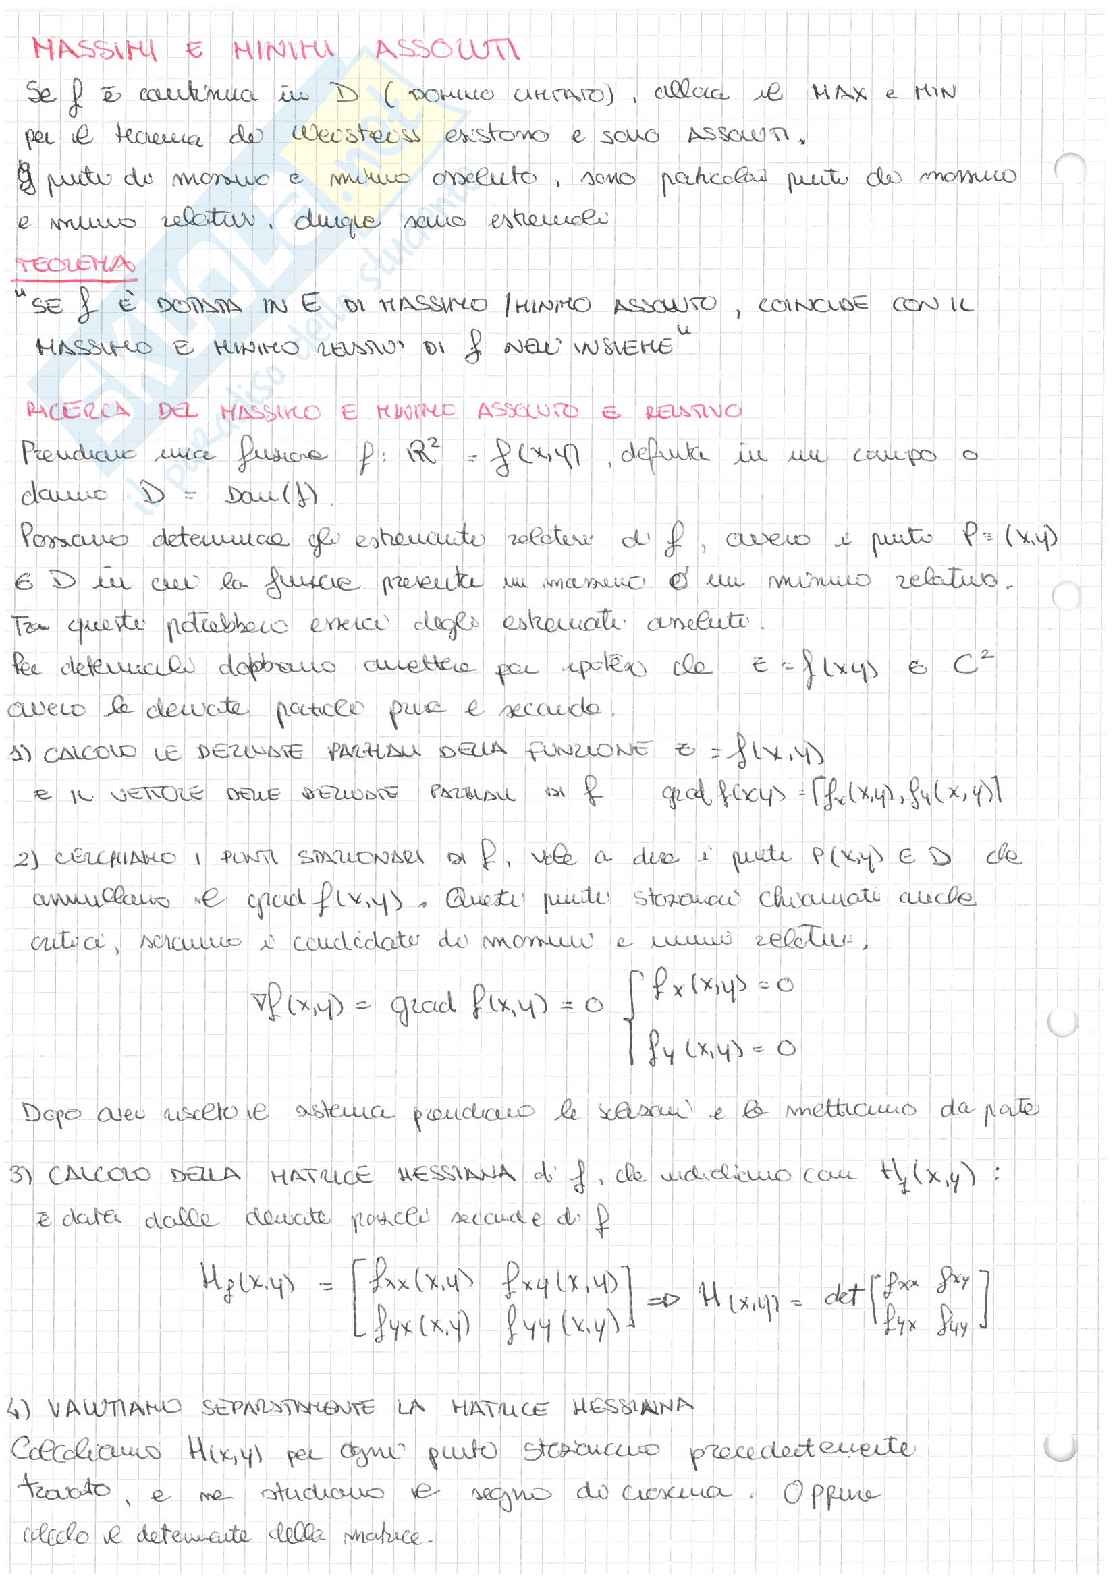 MASSIMI E MINIMI ASSOLUTI
Se f è continua in D (DOMINIO LIMITATO), allora il MAX e MIN
per il teorema di Weistrass esistono e sono ASSOLUTI.
I punti di massimo e minimo assoluto, sono particolari punti di massimo
e minimo relativi, dunque sono estremali
TEOREMA
"SE f È DOTATA IN E DI MASSIMO/MINIMO ASSOLUTO, COINCIDE CON IL
MASSIMO E MINIMO RELATIVI DI f NELL'INSIEME"
RICERCA DEL MASSIMO E MINIMO ASSOLUTO E RELATIVO
Prendiamo una funzione f: R² = f(x,y), definita in un campo o
D = Dom(f).
Possiamo determinare gli estremanti relativi di f, ovvero i punti P=(x,y)
∈ D in cui la funzione presenta un massimo o un minimo relativo.
Tra questi potrebbero esserci degli estremanti assoluti.
Per determinarli dobbiamo ammettere per ipotesi che z = f(xy) ∈ C²
ovvero le derivate parziali pure e seconde.
1) CALCOLO LE DERIVATE PARZIALI DELLA FUNZIONE z = f(x,y)
E IL VETTORE DELLE DERIVATE PARZIALI DI f grad f(xy) = [fx(x,y), fy(x,y)]
2) CERCHIAMO I PUNTI STAZIONARI DI f, vale a dire i punti P(x,y) ∈ D che
annullano il grad f(x,y). Questi punti stazionari chiamati anche
critici, saranno i candidati di massimi e minimi relativi.
∇f(x,y) = grad f(x,y) = 0 { fx(x,y) = 0
fy(x,y) = 0
Dopo aver risolto il sistema prendiamo le soluzioni e le mettiamo da parte
3) CALCOLO DELLA MATRICE HESSIANA di f, che indichiamo con Hf(x,y):
è data dalle derivate parziali seconde di f
Hf(x,y) = [fxx(x,y) fxy(x,y) fyx(x,y) fyy(x,y)] => H(x,y) = det [fxx fxy fyx fyy]
4) VALUTIAMO SEPARATAMENTE LA MATRICE HESSIANA
Calcoliamo H(x,y) per ogni punto stazionario precedentemente
trovato, e ne studiamo il segno di ciascuna. Oppure
calcolo il determinante della matrice.
SKUOLA.net
il paradiso dello studente